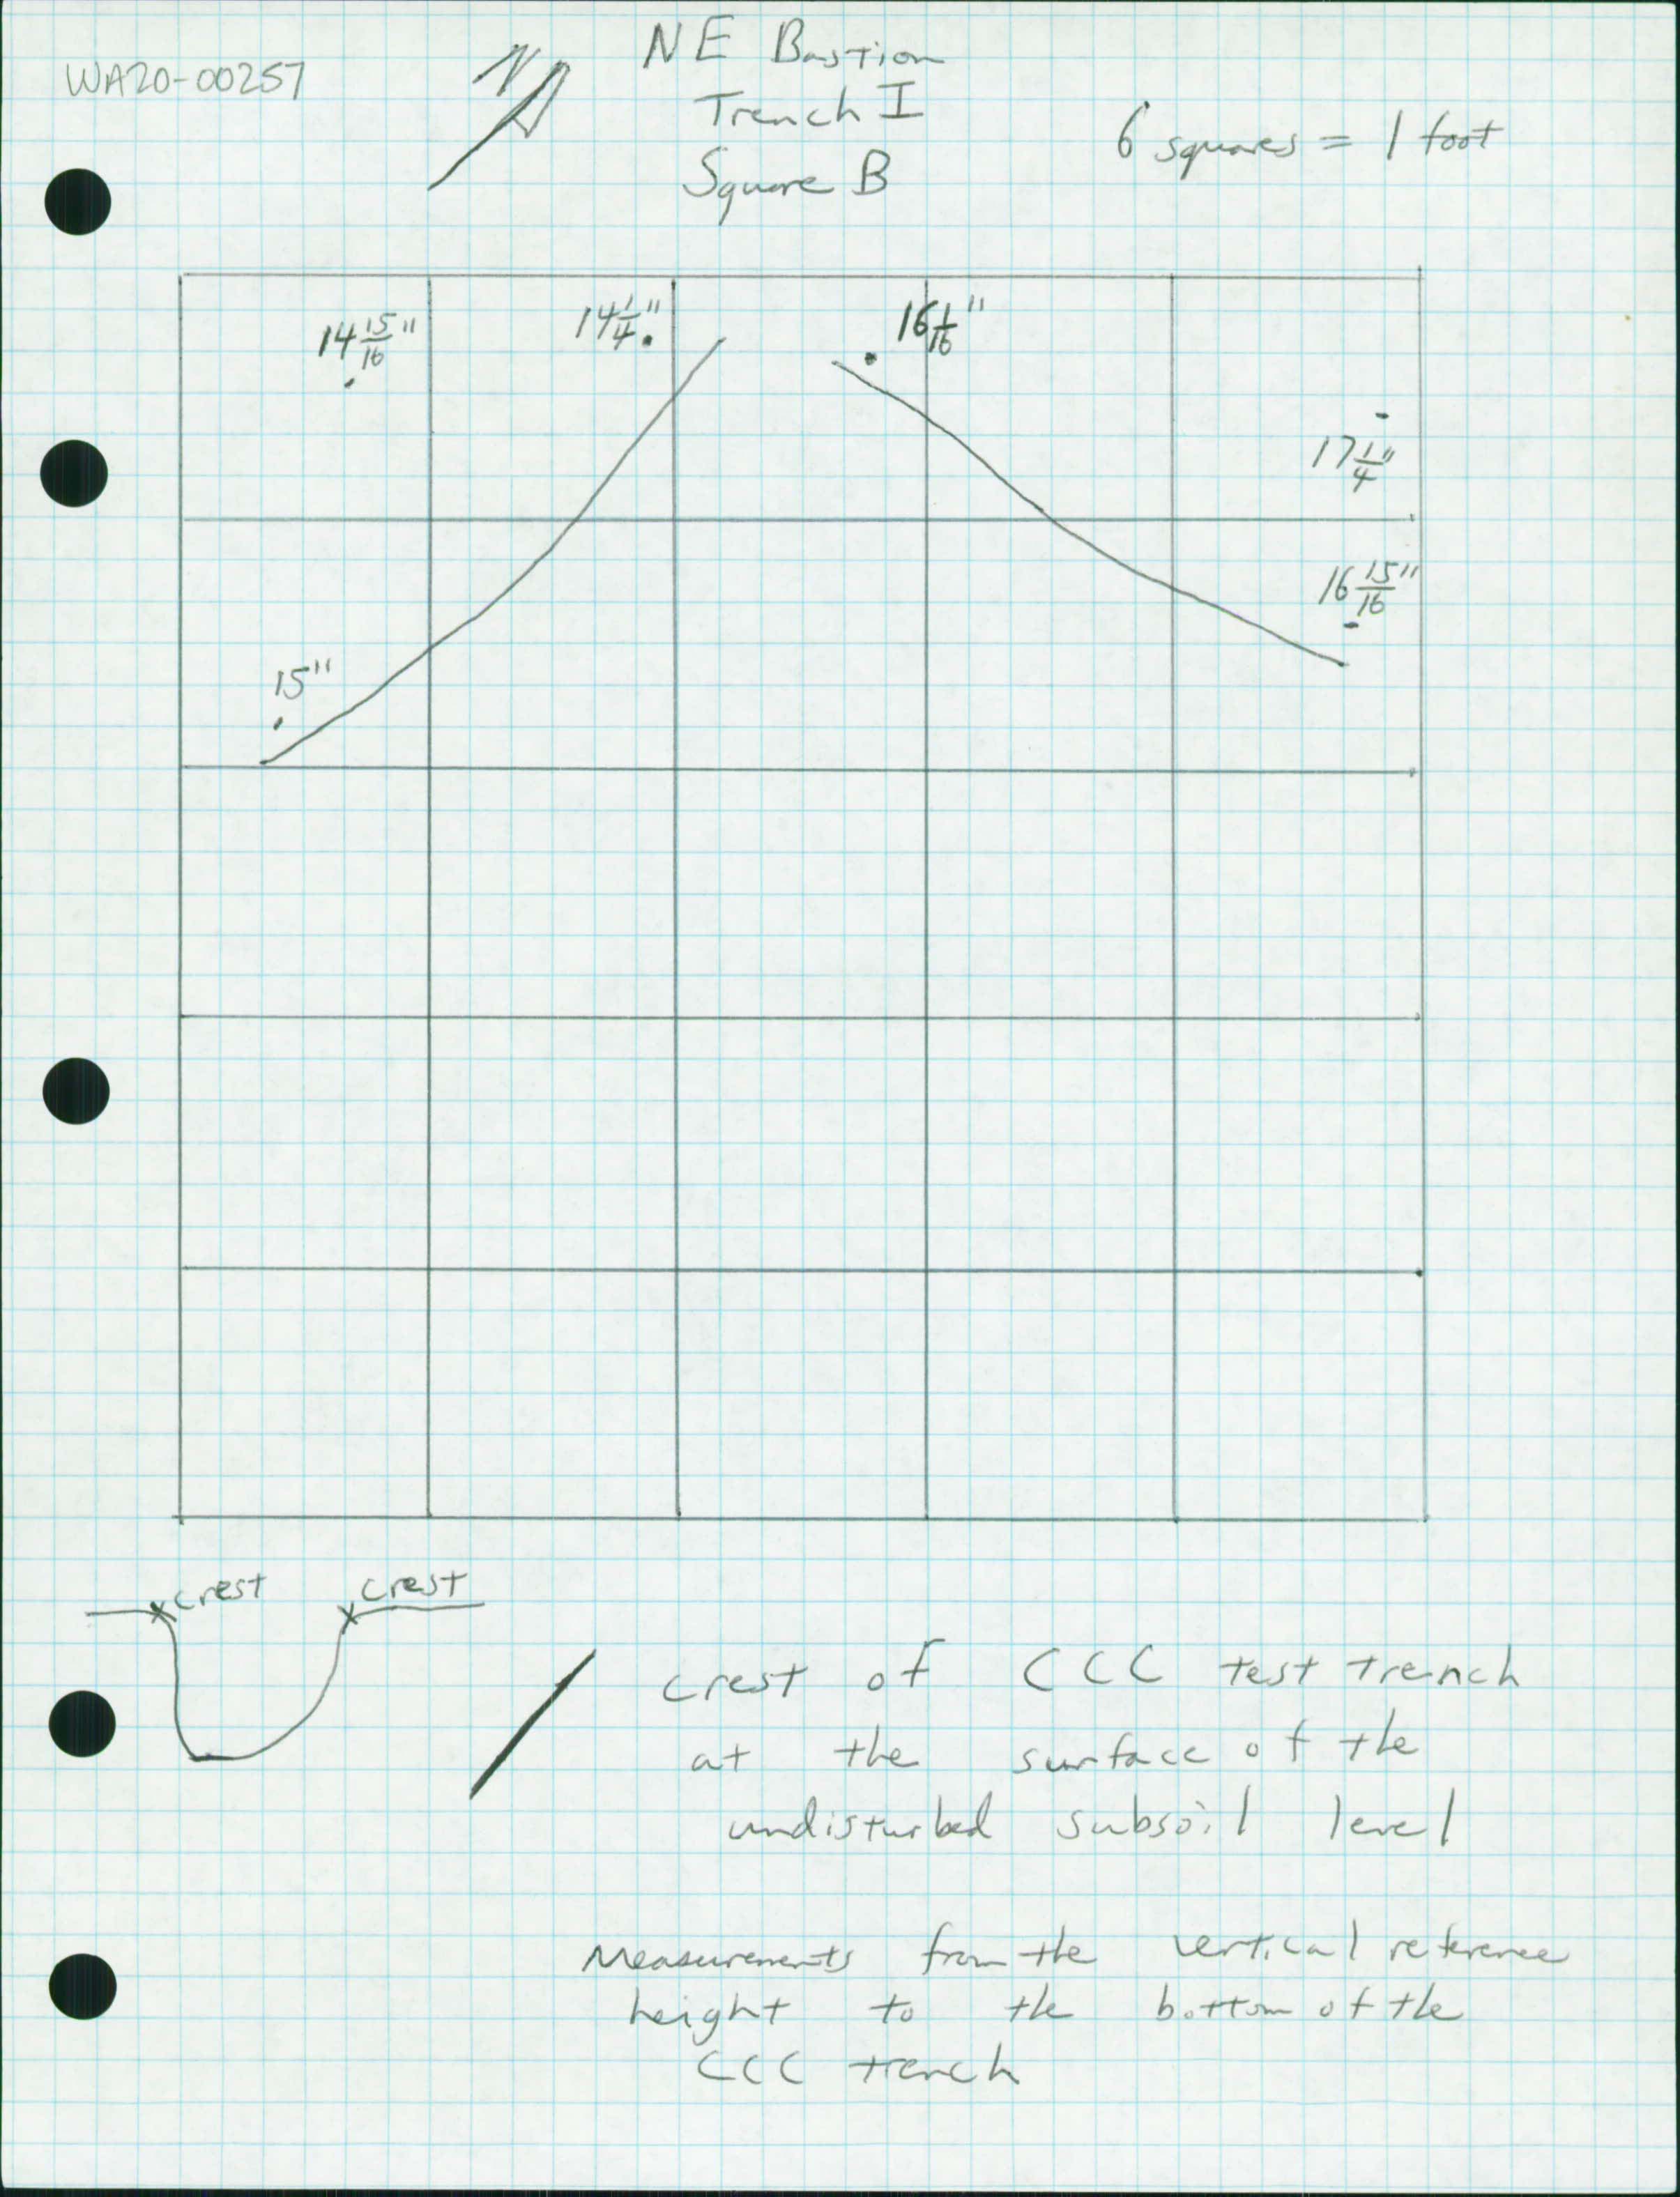 WA20-00257
N
NE Bastion
Trench I
Square B
6 squares = 1 foot
14 15/16"
14 1/4"
16 1/16"
17 1/4"
16 15/16"
15"
crest
crest
crest of CCC test trench
at the surface of the
undisturbed subsoil level
Measurements from the vertical reference
height to the bottom of the
CCC trench